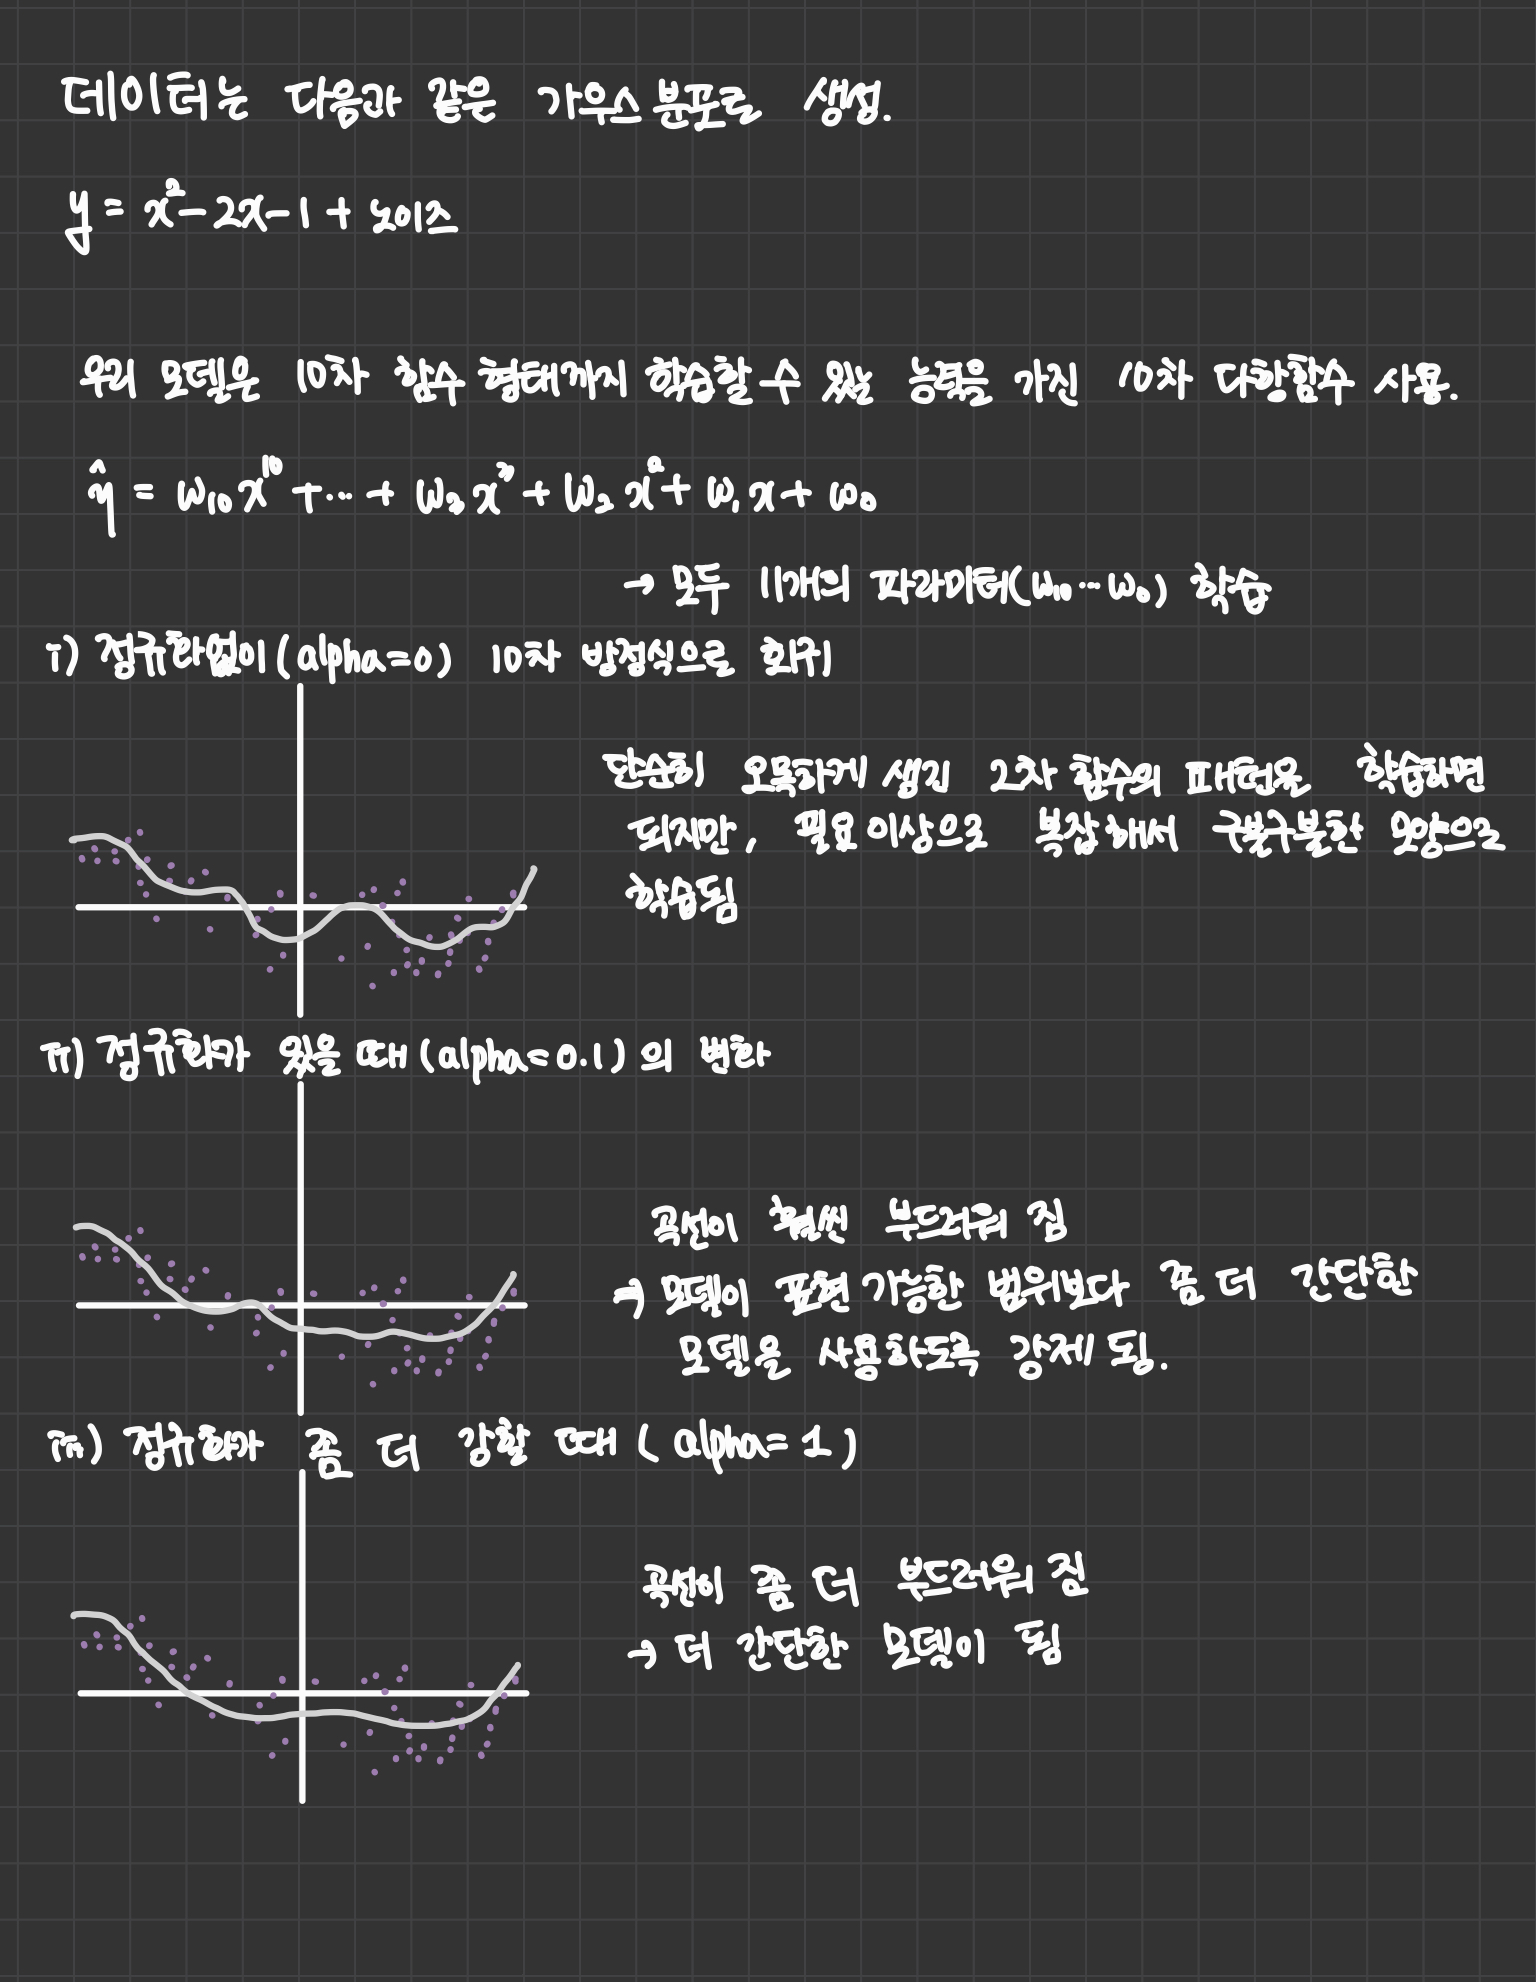 데이터는 다음과 같은 가우스 분포로 생성.
y = x² - 2x - 1 + 노이즈
우리 모델은 10차 함수 형태까지 학습할 수 있는 능력을 가진 10차 다항함수 사용.
ŷ = w₁₀x¹⁰ + ... + w₃x³ + w₂x² + w₁x + w₀
→ 모두 11개의 파라미터(w₁₀...w₀) 학습
i) 정규화없이(alpha=0) 10차 방정식으로 회귀
단순히 오목하게 생긴 2차 함수의 패턴을 학습하면
되지만, 필요 이상으로 복잡해서 구불구불한 모양으로
학습됨
ii) 정규화가 있을 때(alpha=0.1)의 변화
곡선이 훨씬 부드러워 짐
⇒ 모델이 표현 가능한 범위보다 좀 더 간단한
모델을 사용하도록 강제 됨.
iii) 정규화가 좀 더 강할 때(alpha=1)
곡선이 좀 더 부드러워 짐
→ 더 간단한 모델이 됨